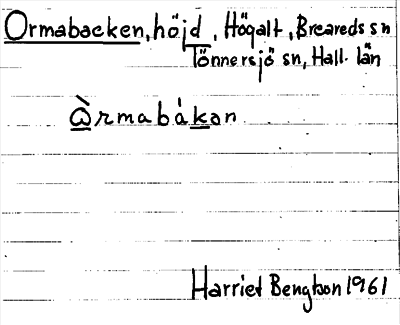 Ormabacken, höjd, Högalt, Breareds sn
Tönnersjö sn, Hall. län
àrmabákan
Harriet Bengtson 1961